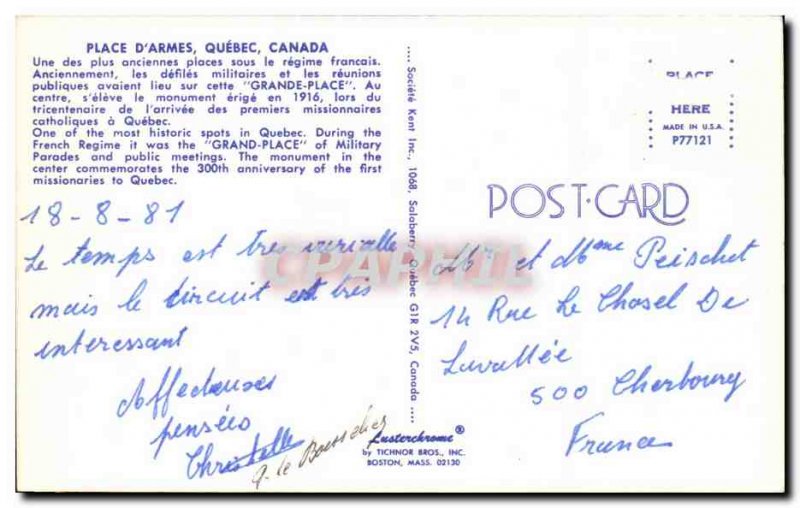 PLACE D'ARMES, QUÉBEC, CANADA
Une des plus anciennes places sous le régime francais.
Anciennement, les défilés militaires et les réunions
publiques avaient lieu sur cette "GRANDE-PLACE". Au
centre, s'élève le monument érigé en 1916, lors du
tricentenaire de l'arrivée des premiers missionnaires
catholiques à Québec.
One of the most historic spots in Quebec. During the
French Regime it was the "GRAND-PLACE" of Military
Parades and public meetings. The monument in the
center commemorates the 300th anniversary of the first
missionaries to Quebec.
18-8-81
Le temps est très
mais le circuit est très
interessant
Affectueuses
pensées
Christelle
.... Société Kent Inc., 1068, Salaberry, Québec G1R 2V5, Canada ....
Lusterchrome®
by TICHNOR BROS., INC.
BOSTON, MASS. 02130
PLACE
HERE
MADE IN U.S.A.
P77121
POST-CARD
Mr et Mme Peischet
14 Rue Le Chosel De
Lavallée
500 Cherbourg
France
CPAPHIL